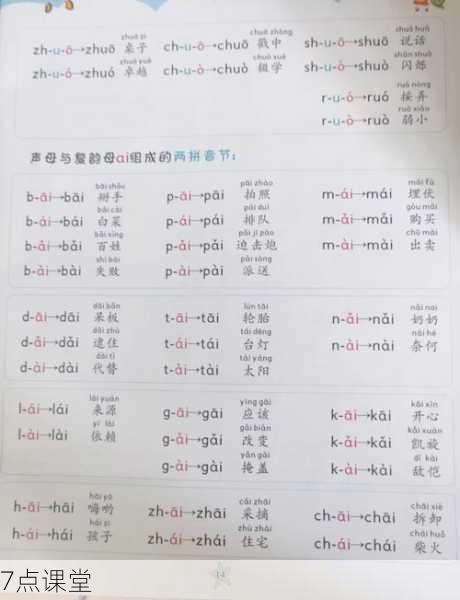 zhuō zi chuō zhòng shuō huà
zh-u-ō→zhuō 桌子 ch-u-ō→chuō 戳中 sh-u-ō→shuō 说话
zhuó yuè chuò xué shǎn shuò
zh-u-ó→zhuó 卓越 ch-u-ò→chuò 辍学 sh-u-ò→shuò 闪烁
ruó nòng
r-u-ó→ruó 挼弄
ruò xiǎo
r-u-ò→ruò 弱小
声母与复韵母ai组成的两拼音节：
bāi shǒu pāi zhào mái fú
b-āi→bāi 掰手 p-āi→pāi 拍照 m-ái→mái 埋伏
bái cài pái duì gòu mǎi
b-ái→bái 白菜 p-ái→pái 排队 m-ǎi→mǎi 购买
bǎi xìng pǎi jī pào chū mài
b-ǎi→bǎi 百姓 p-ǎi→pǎi 迫击炮 m-ài→mài 出卖
shī bài pài sòng
b-ài→bài 失败 p-ài→pài 派送
dāi bǎn lún tāi nǎi nai
d-āi→dāi 呆板 t-āi→tāi 轮胎 n-ǎi→nǎi 奶奶
dǎi zhù tái dēng nài hé
d-ǎi→dǎi 逮住 t-ái→tái 台灯 n-ài→nài 奈何
dài tì tài yáng
d-ài→dài 代替 t-ài→tài 太阳
lái yuán yīng gāi kāi xīn
l-ái→lái 来源 g-āi→gāi 应该 k-āi→kāi 开心
yī lài gǎi biàn kǎi xuán
l-ài→lài 依赖 g-ǎi→gǎi 改变 k-ǎi→kǎi 凯旋
yǎn gài dí kài
g-ài→gài 掩盖 k-ài→kài 敌忾
hāi yō cǎi zhāi chāi xiè
h-āi→hāi 嗨哟 zh-āi→zhāi 采摘 ch-āi→chāi 拆卸
hái zi zhù zhái chái huǒ
h-ái→hái 孩子 zh-ái→zhái 住宅 ch-ái→chái 柴火
14
7点课堂